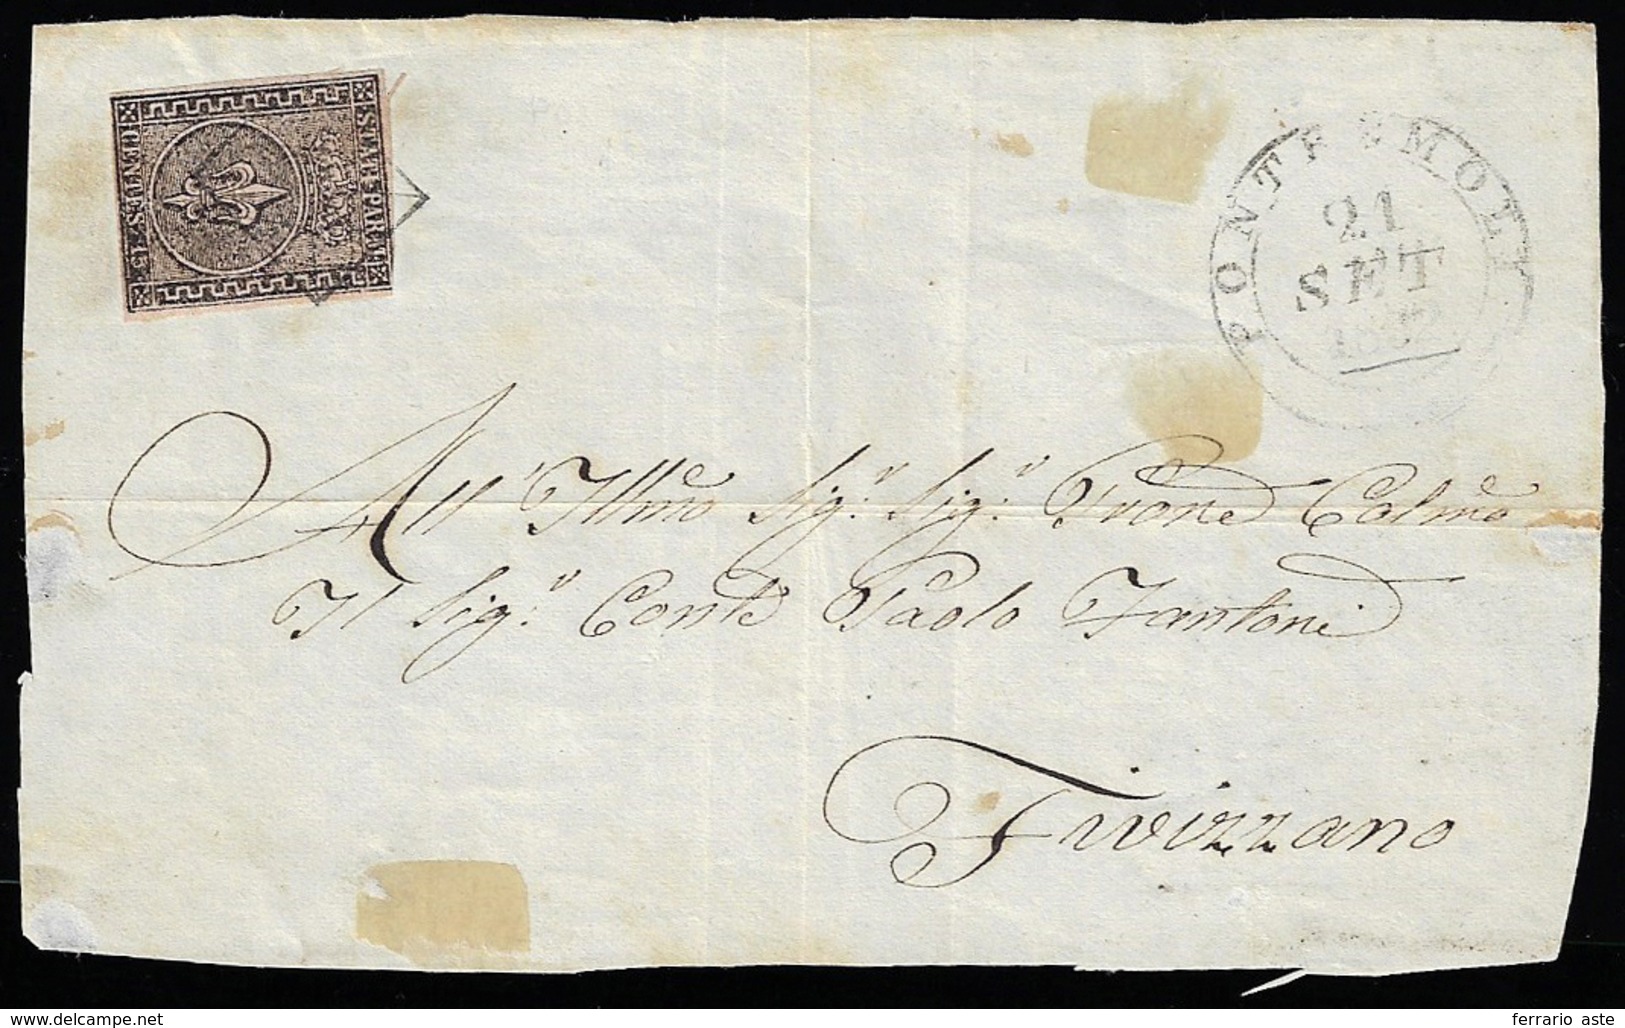 STATI PARM.
CENTES. 15
PONTREMOLI
21
SET
1852
All' Illmo Sigr. Sigr. Prone Colmo
Il Sigr. Conte Paolo Fantoni
Fivizzano
delcampe.net
ferrario aste